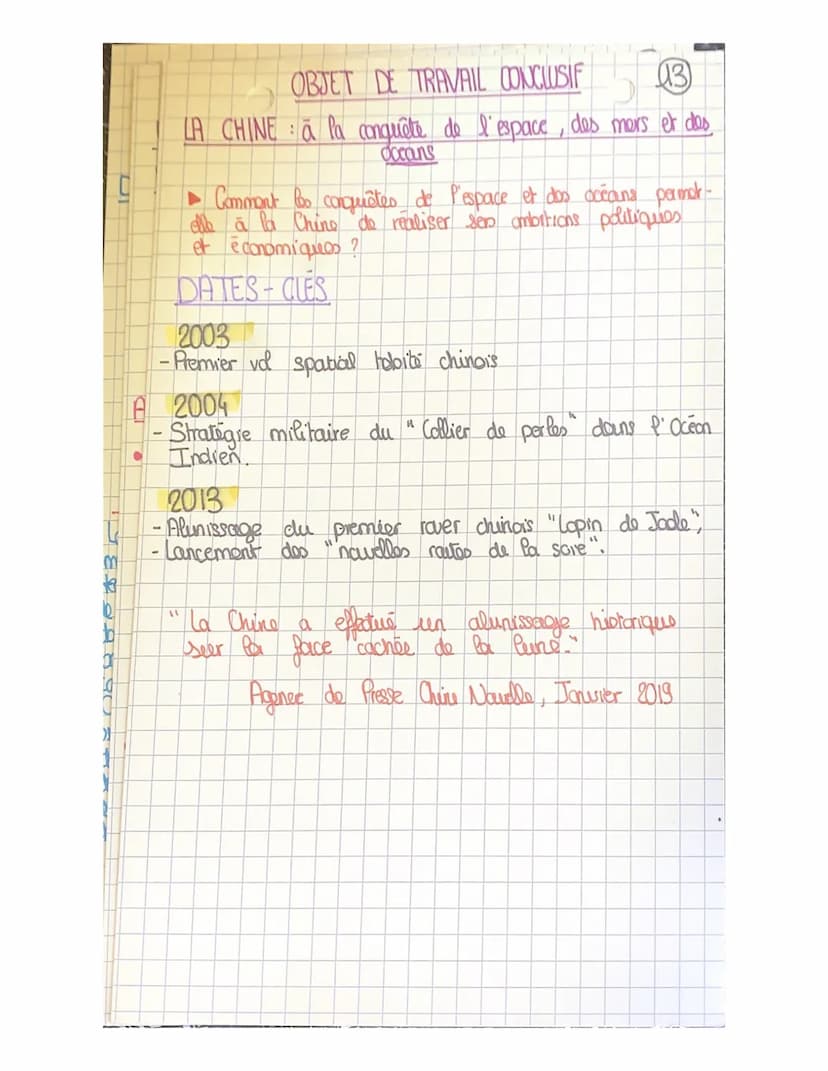 OBJET DE TRAVAIL CONCLUSIF
13
LA CHINE : à la conquête de l'espace, des mers et des
océans
► Comment les conquêtes de l'espace et des océans permet-
elle à la Chine de réaliser ses ambitions politiques
et économiques ?
DATES-CLÉS
2003
- Premier vol spatial habité chinois
A
2004
- Stratégie militaire du "Collier de perles" dans l'Océan
Indien.
2013
- Alunissage du premier rover chinois "Lapin de Jade",
- Lancement des "nouvelles routes de la soie".
"La Chine a effectué un alunissage historique
sur la face cachée de la lune."
Agence de Presse Chine Nouvelle, Janvier 2019